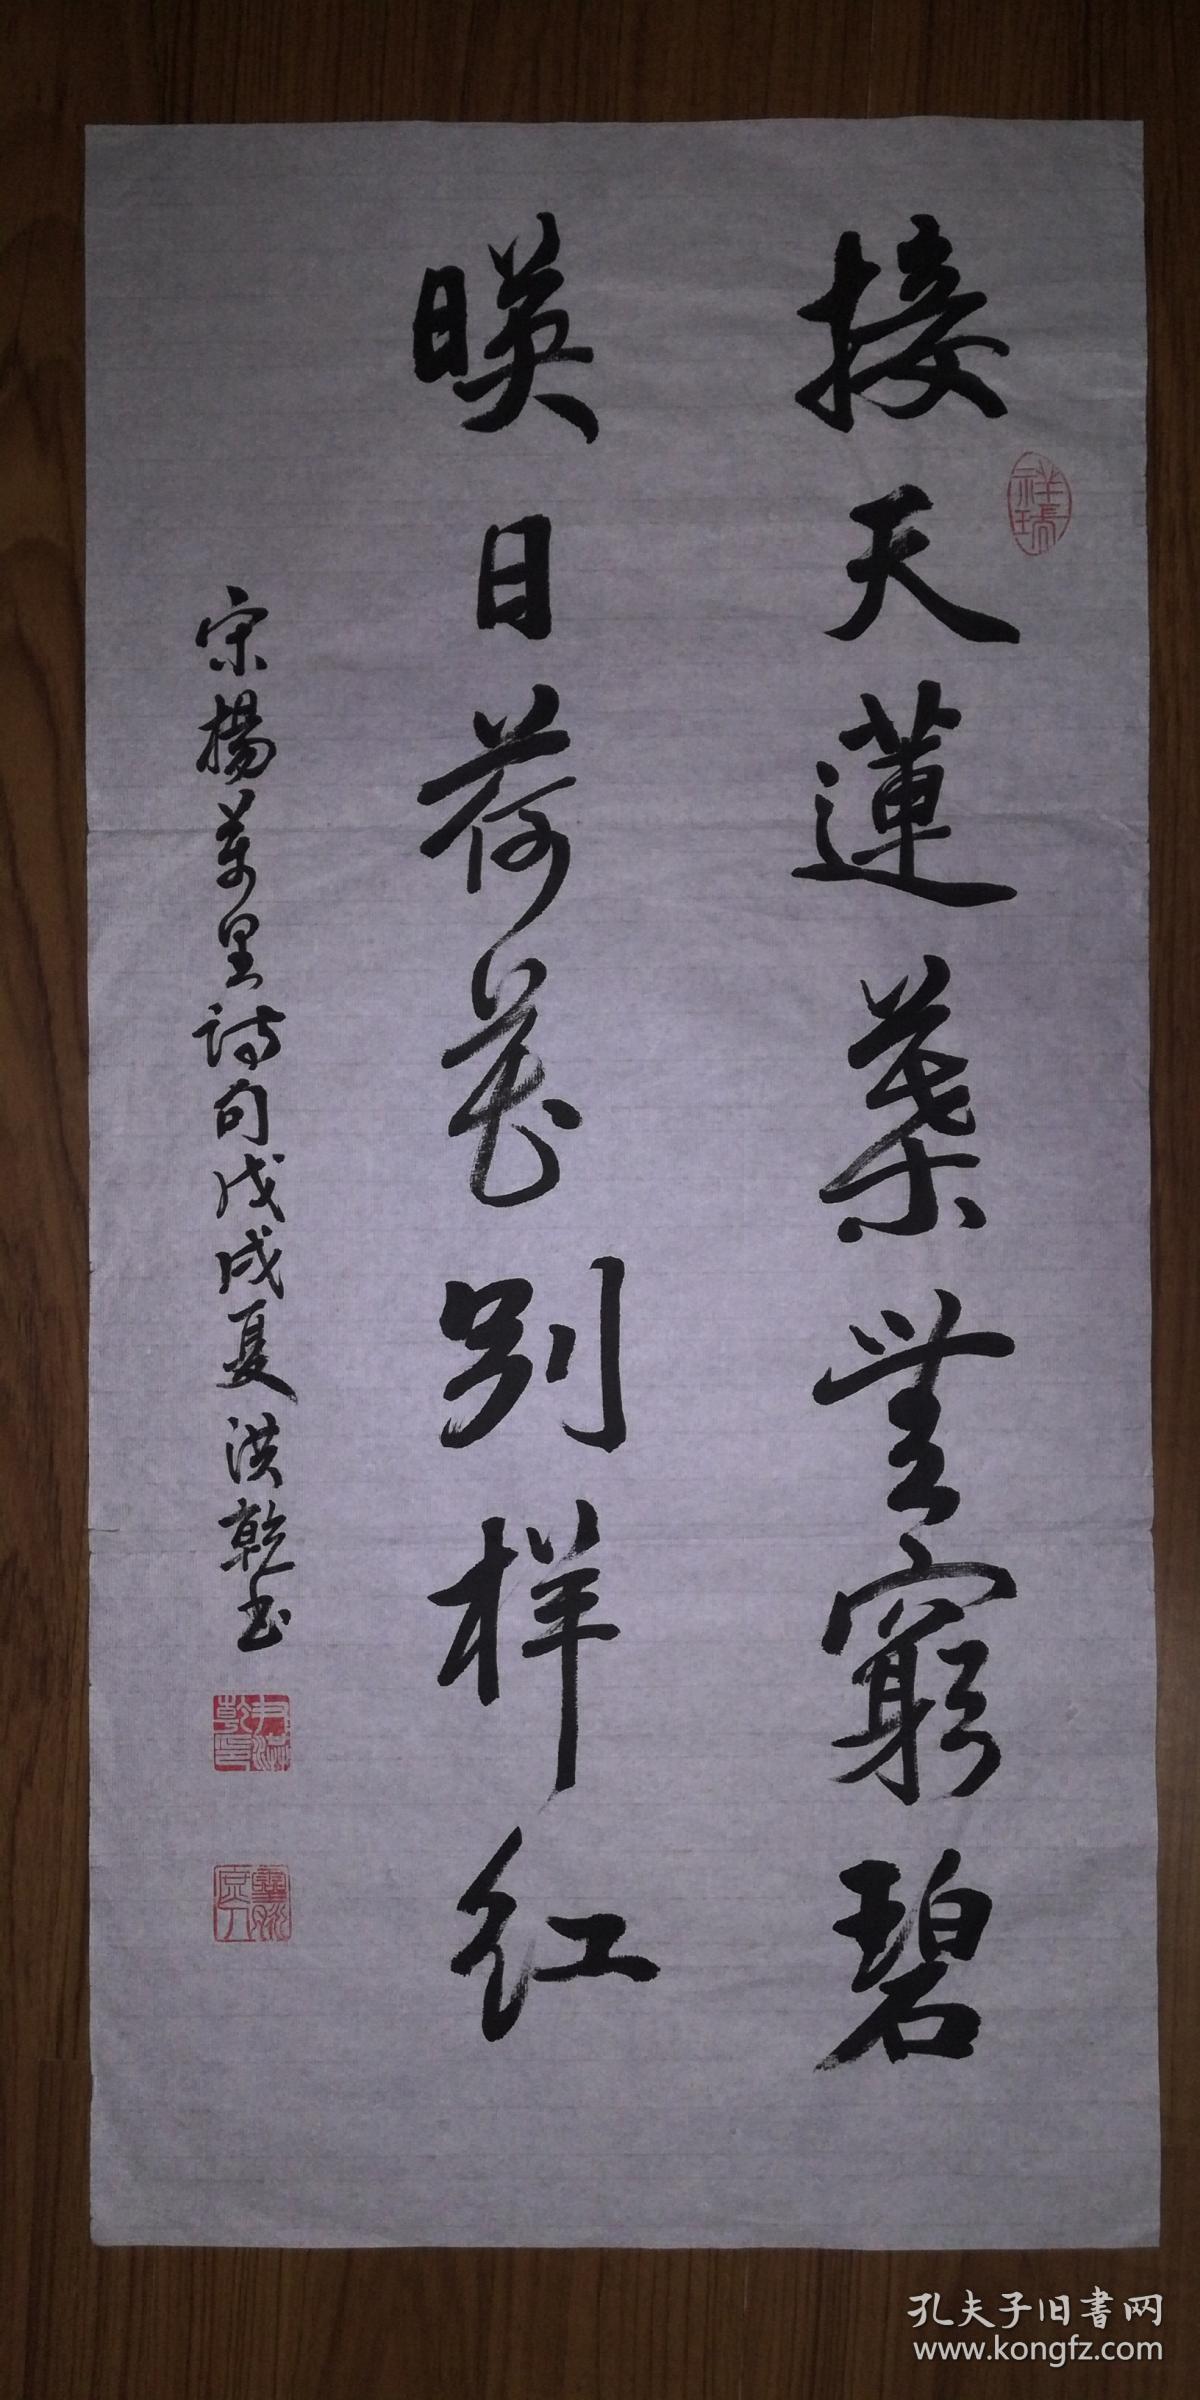 接天蓮葉無窮碧
暎日荷花别样红
宋楊萬里詩句戊戌夏洪乾书
祥瑞
孔夫子旧書网
www.kongfz.com